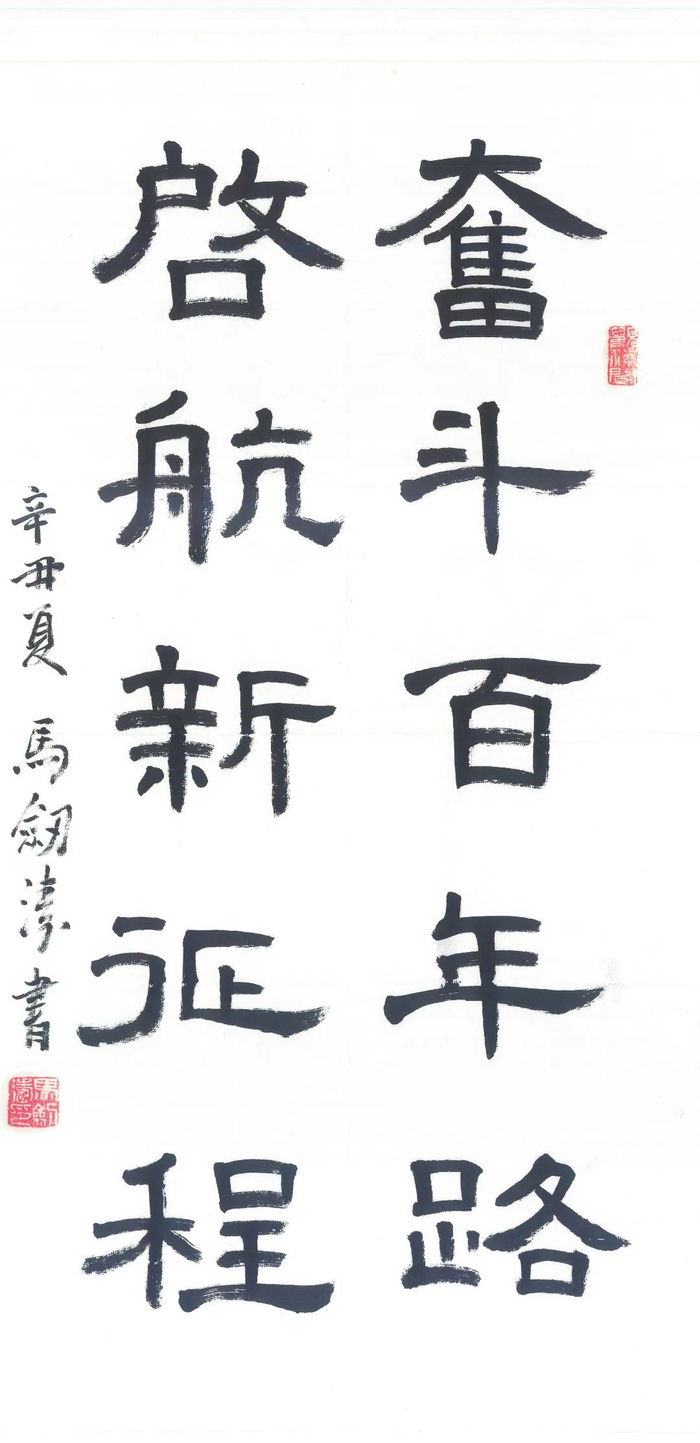 奮斗百年路
啓航新征程
辛丑夏 馬劍濤書